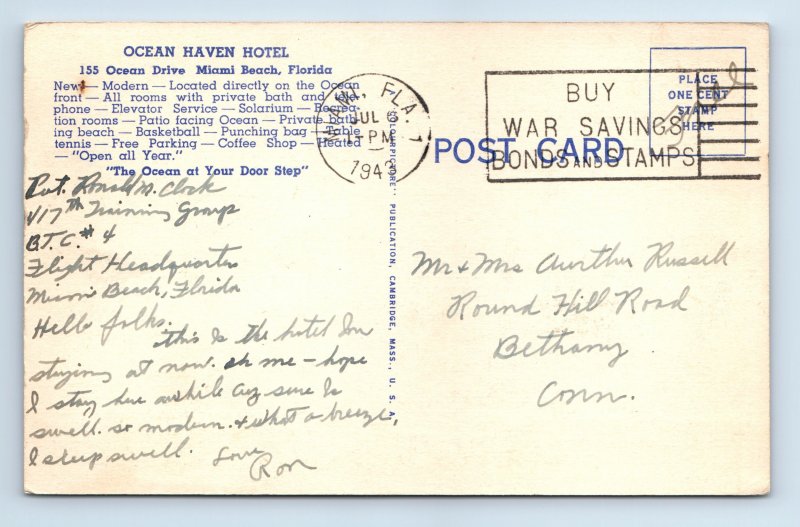 OCEAN HAVEN HOTEL
155 Ocean Drive Miami Beach, Florida
New — Modern — Located directly on the Ocean
front — All rooms with private bath and tele-
phone — Elevator Service — Solarium — Recrea-
tion rooms — Patio facing Ocean — Private bath-
ing beach — Basketball — Punching bag — Table
tennis — Free Parking — Coffee Shop — Heated
— "Open all Year."
"The Ocean at Your Door Step"
Pvt. Ronald M. Clock
417th Training Group
B.T.C. # 4
Flight Headquarters
Miami Beach, Florida
Hello folks.
this is the hotel Im
staying at now. oh me – hope
I stay here awhile cuz sure is
swell. so modern. + what a breeze,
I sleep swell.
Love
Ron
MIAMI, FLA. 1
JUL 6
1943
BUY
WAR SAVINGS
BONDS AND STAMPS
PLACE
ONE CENT
STAMP
HERE
Free
POST CARD
"COLOURPICTURE" PUBLICATION, CAMBRIDGE, MASS., U. S. A.
Mr + Mrs Aurthur Russell
Round Hill Road
Bethany
Conn.